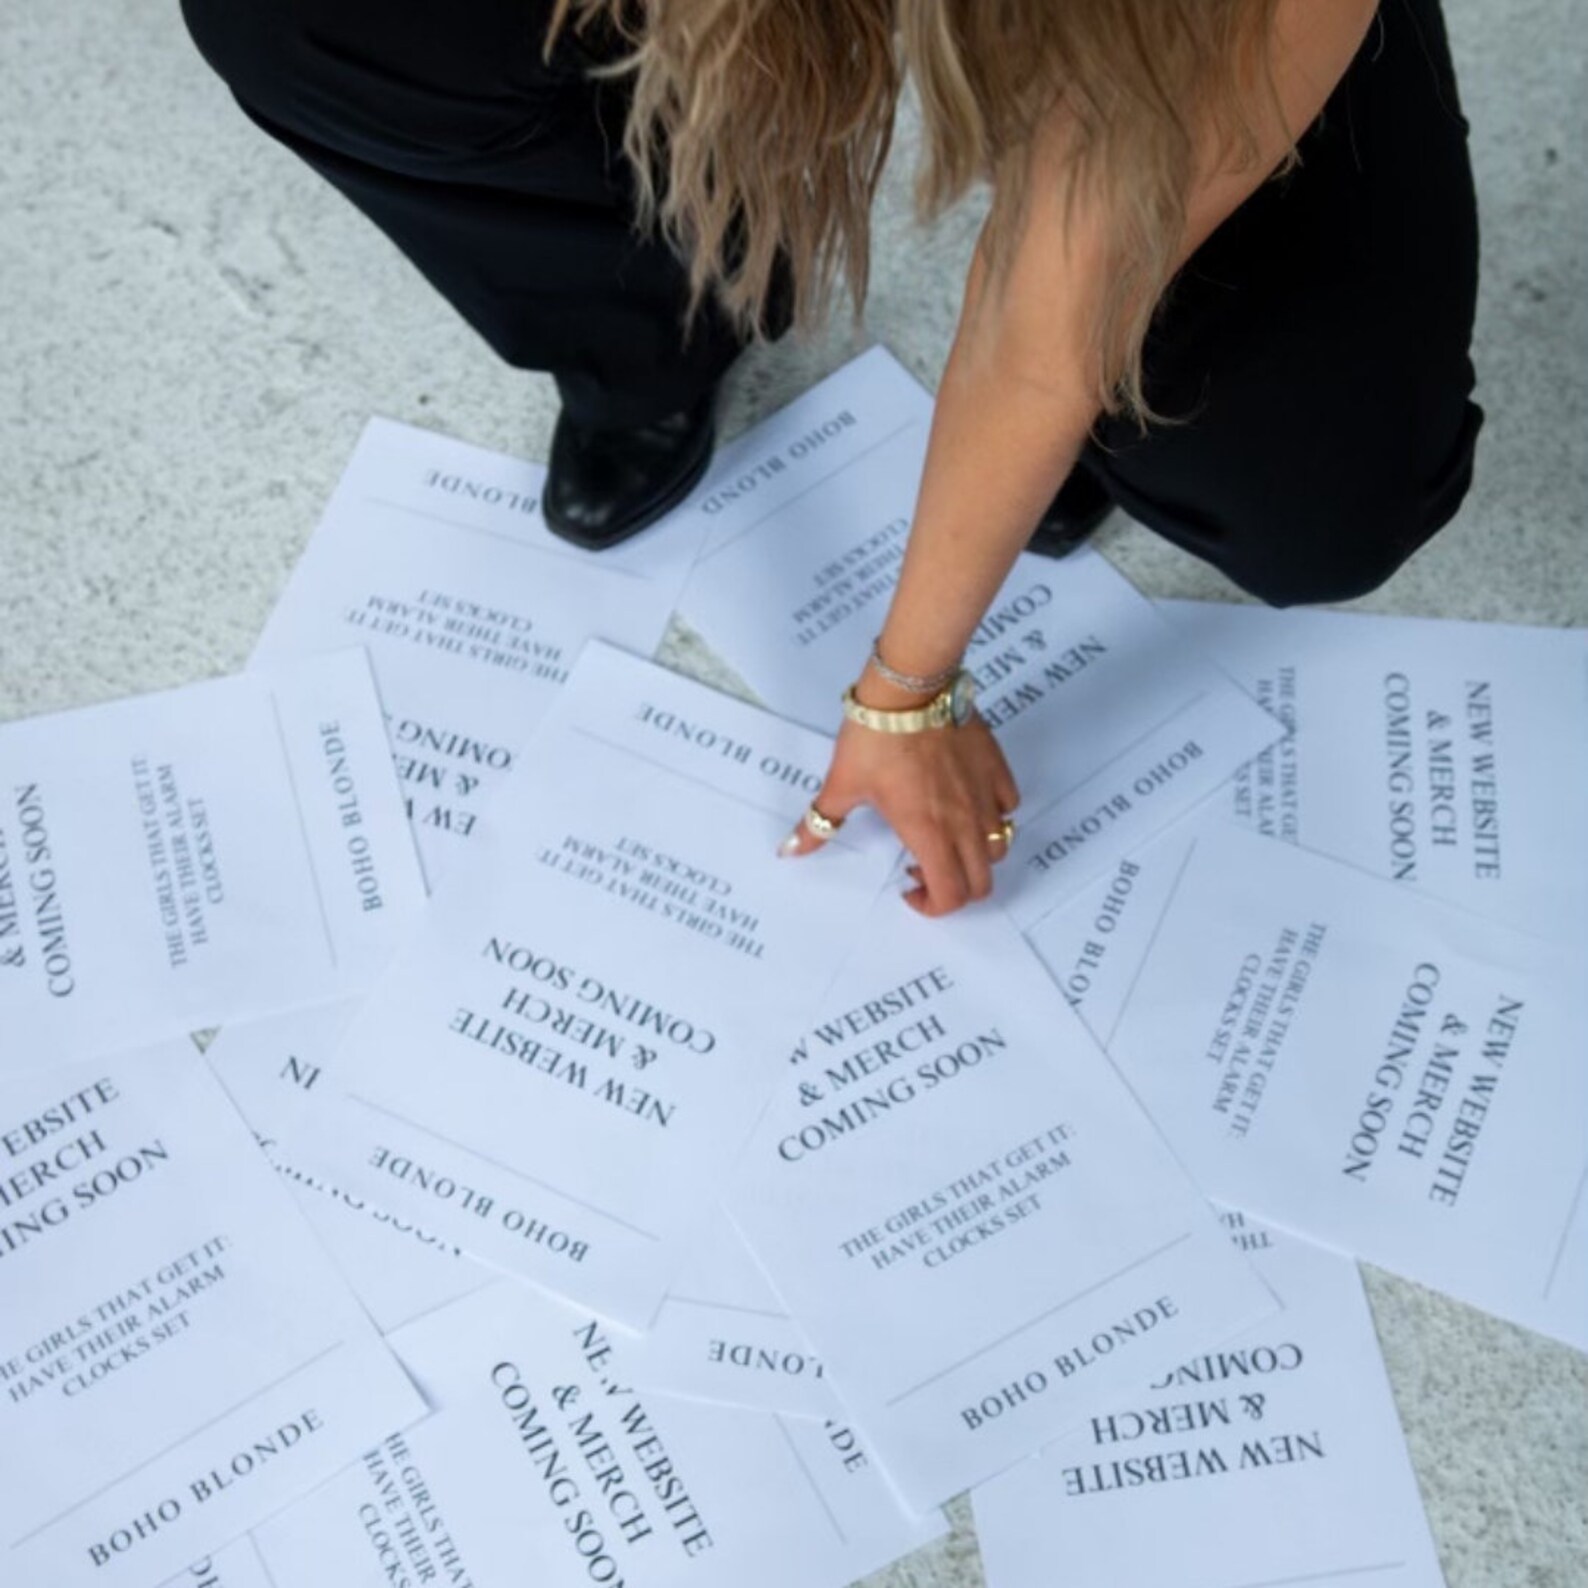 BOHO BLONDE
BLONDE
THE GIRLS THAT GET IT:
HAVE THEIR ALARM
CLOCKS SET
THAT GET IT:
THEIR ALARM
CLOCKS SET
NEW
& ME
COMING
BOHO BLONDE
NEW WEBSITE
& MERCH
COMING SOON
THE GIRLS THAT GET IT:
HAVE THEIR ALARM
CLOCKS SET
BOHO BLONDE
BOHO BLONDE
THE GIRLS THAT GET IT:
HAVE THEIR ALARM
CLOCKS SET
COMING SOON
BOHO BLONDE
THE GIRLS THAT GET IT:
HAVE THEIR ALARM
CLOCKS SET
NEW WEBSITE
& MERCH
COMING SOON
BOHO BLONDE
WEBSITE
& MERCH
COMING SOON
THE GIRLS THAT GET IT:
HAVE THEIR ALARM
CLOCKS SET
BOHO BLONDE
BOHO
THE GIRLS THAT GET IT:
HAVE THEIR ALARM
CLOCKS SET
NEW WEBSITE
& MERCH
COMING SOON
THE GIRLS THAT GET IT:
HAVE THEIR ALARM
CLOCKS SET
BOHO BLONDE
WEBSITE
& MERCH
COMING SOON
THE GIRLS THAT
HAVE THEIR
CLOCKS
NEW WEBSITE
& MERCH
COMING